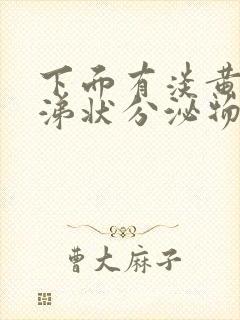 下而有淡黄
涕状分泌物
曹大麻子